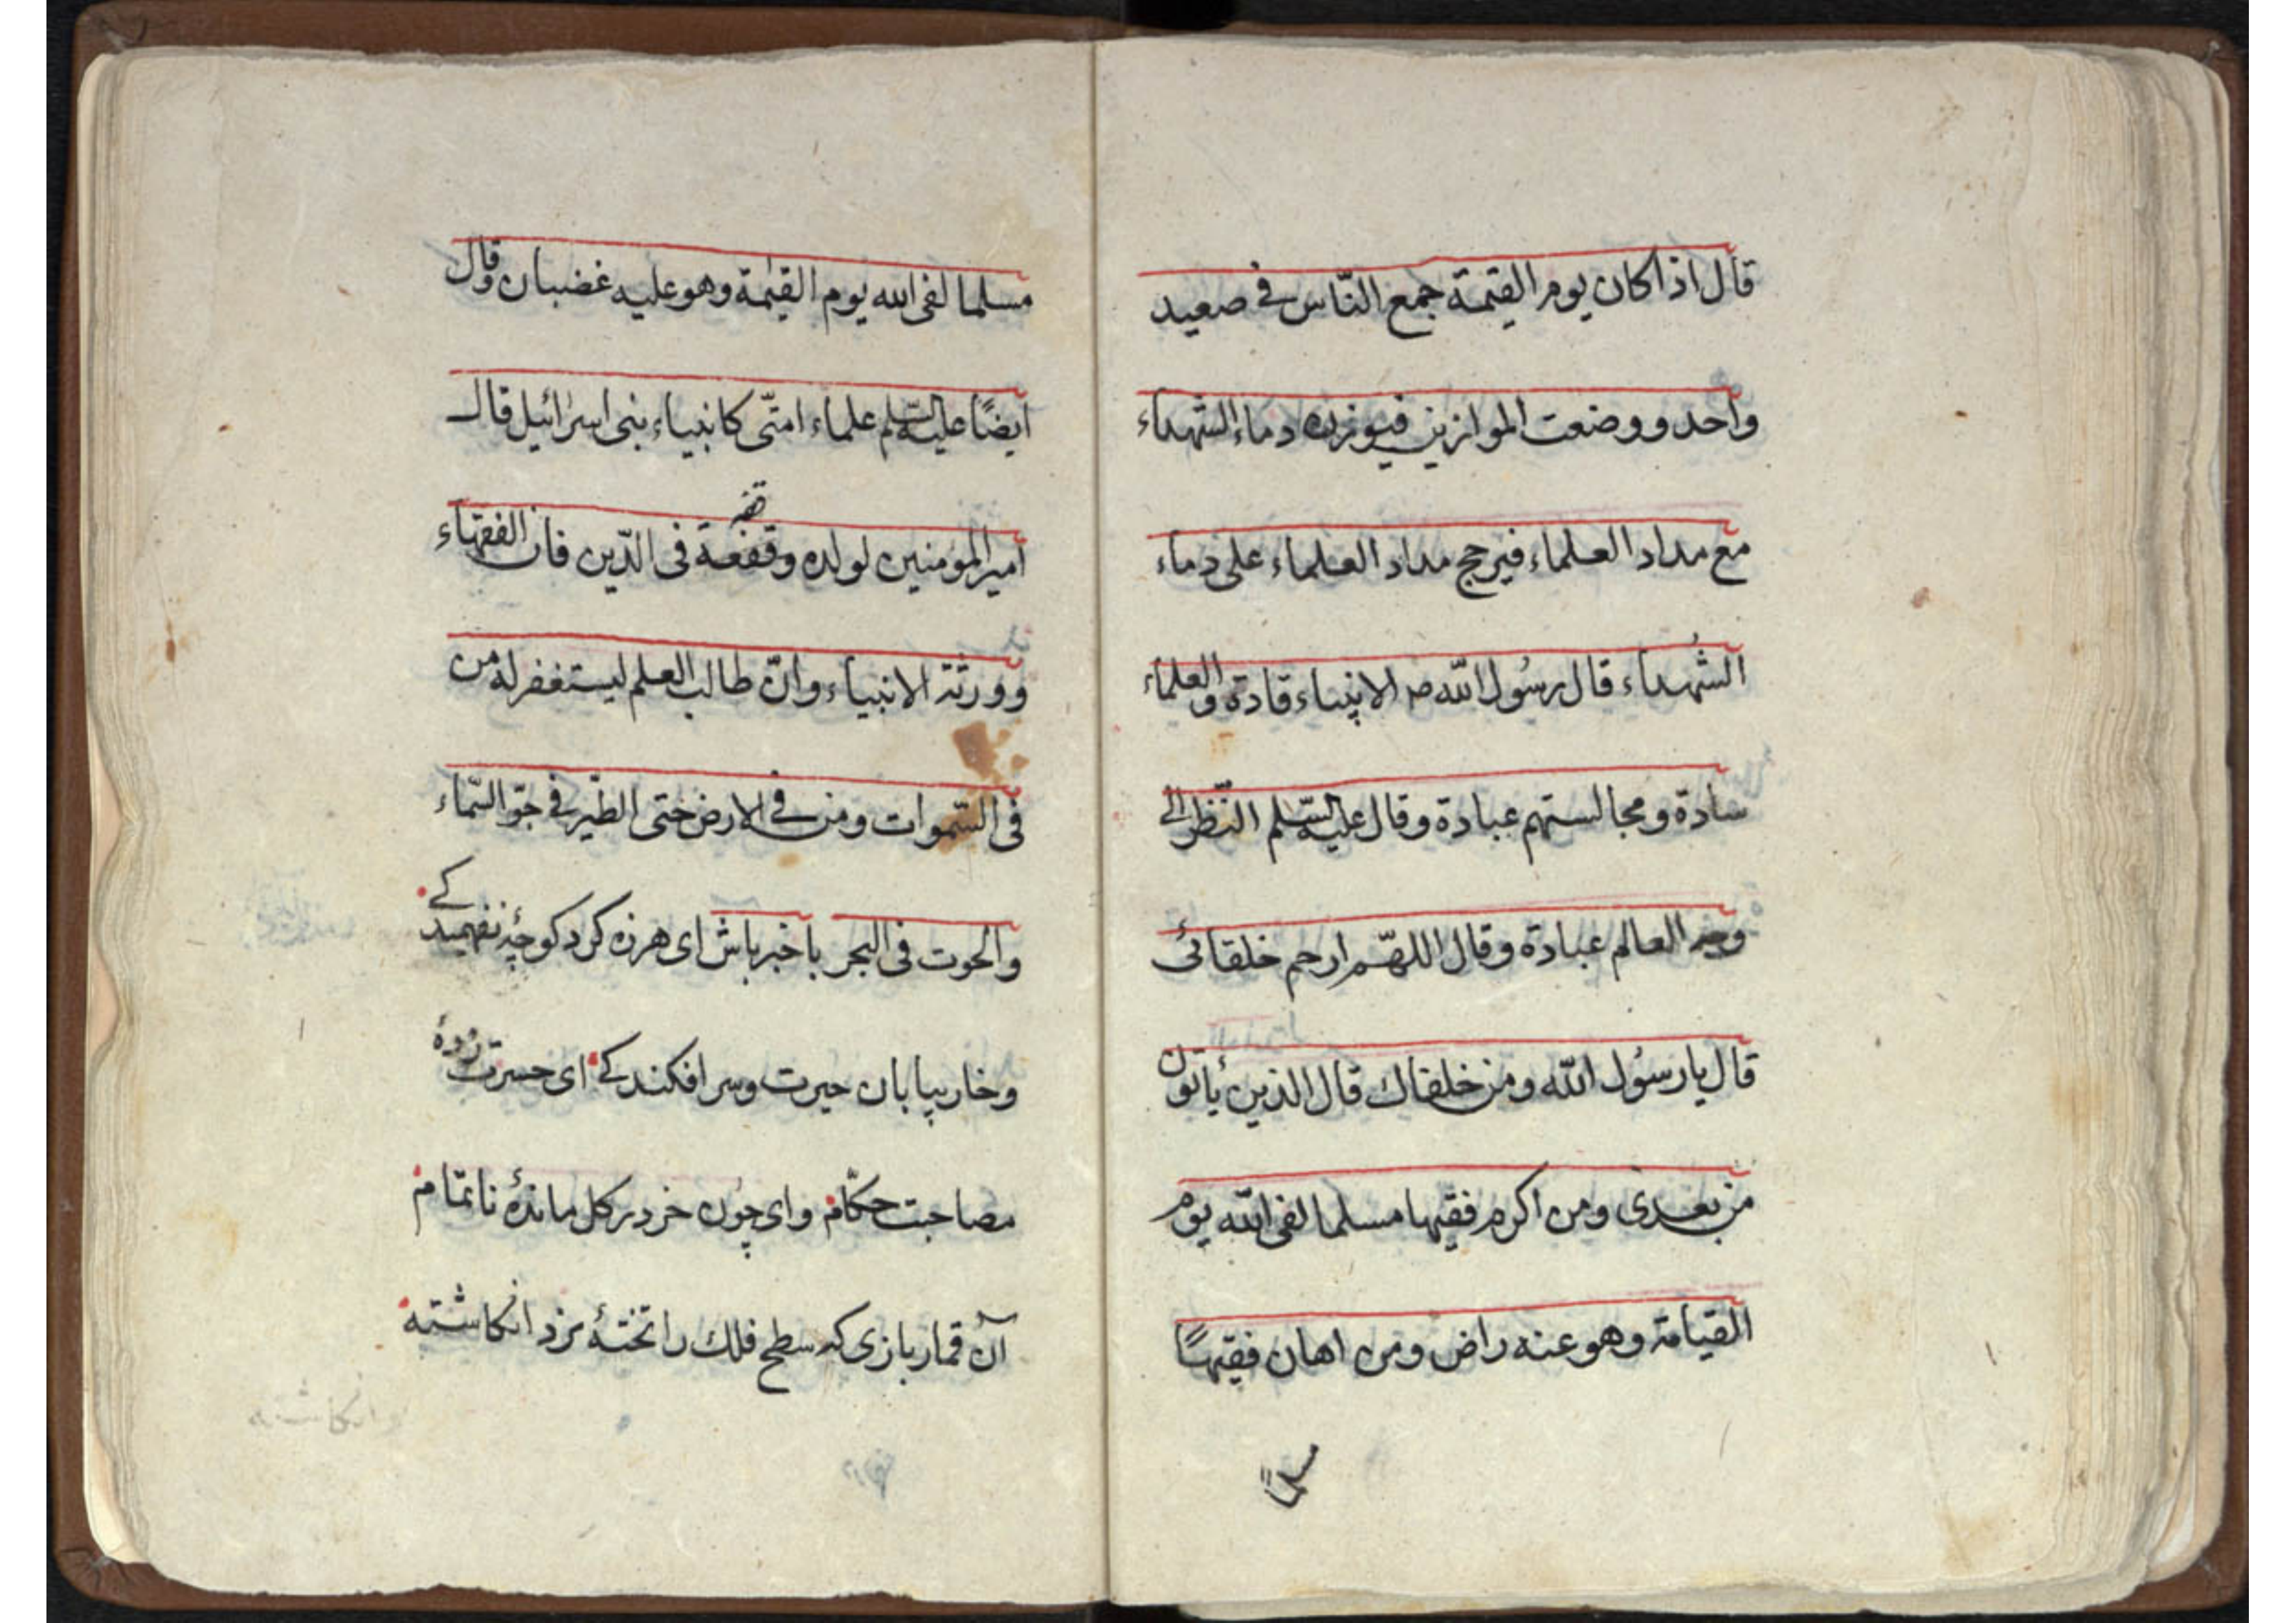 قال اذا كان يوم القيمة جمع النّاس فى صعيد
واحد ووضعت الموازين فيوزن دماء الشهداء
مع مداد العلماء فيرجح مداد العلماء على دماء
الشُهداء قال رسُول اللّه ص الانبياء قادة والعلماء
سادة ومجالستهم عبادة وقال عليه السّلم النّظر الى
وجه العالم عبادة وقال اللهّم ارحم خلقائى
قال يا رسُول اللّه ومن خلفاك قال الذين يأتون
من بعدى ومن اكرم فقيها مسلما لقى اللّه يوم
القيامة وهو عنه راض ومن اهان فقيهًا
مسلماً
مسلما لقى الله يوم القيٰمة وهو عليه غضبان وقال
ايضًا عليه السّلم علماء امتّى كانبياء بنى اسرائيل قال
امير المؤمنين لولده وتفقه فى الدّين فان الفقهاء
وورثة الانبياء وانّ طالب العلم ليستغفر له من
فى السّموات ومن فى الارض حتى الطّير فى جوّ السّماء
والحوت فى البحر باخبر باش اى هرزه كرد كوچهٔ نفهميدكے
وخار بيابان حيرت وسر افكندكے اى حسرت زدهٔ
مصاحبت حكّام واى چون خر در كل ماندهٔ ناتمّام
آن قمار بازى كه سطح فلك را تختهٔ نرد انكاشته
وانكاشته